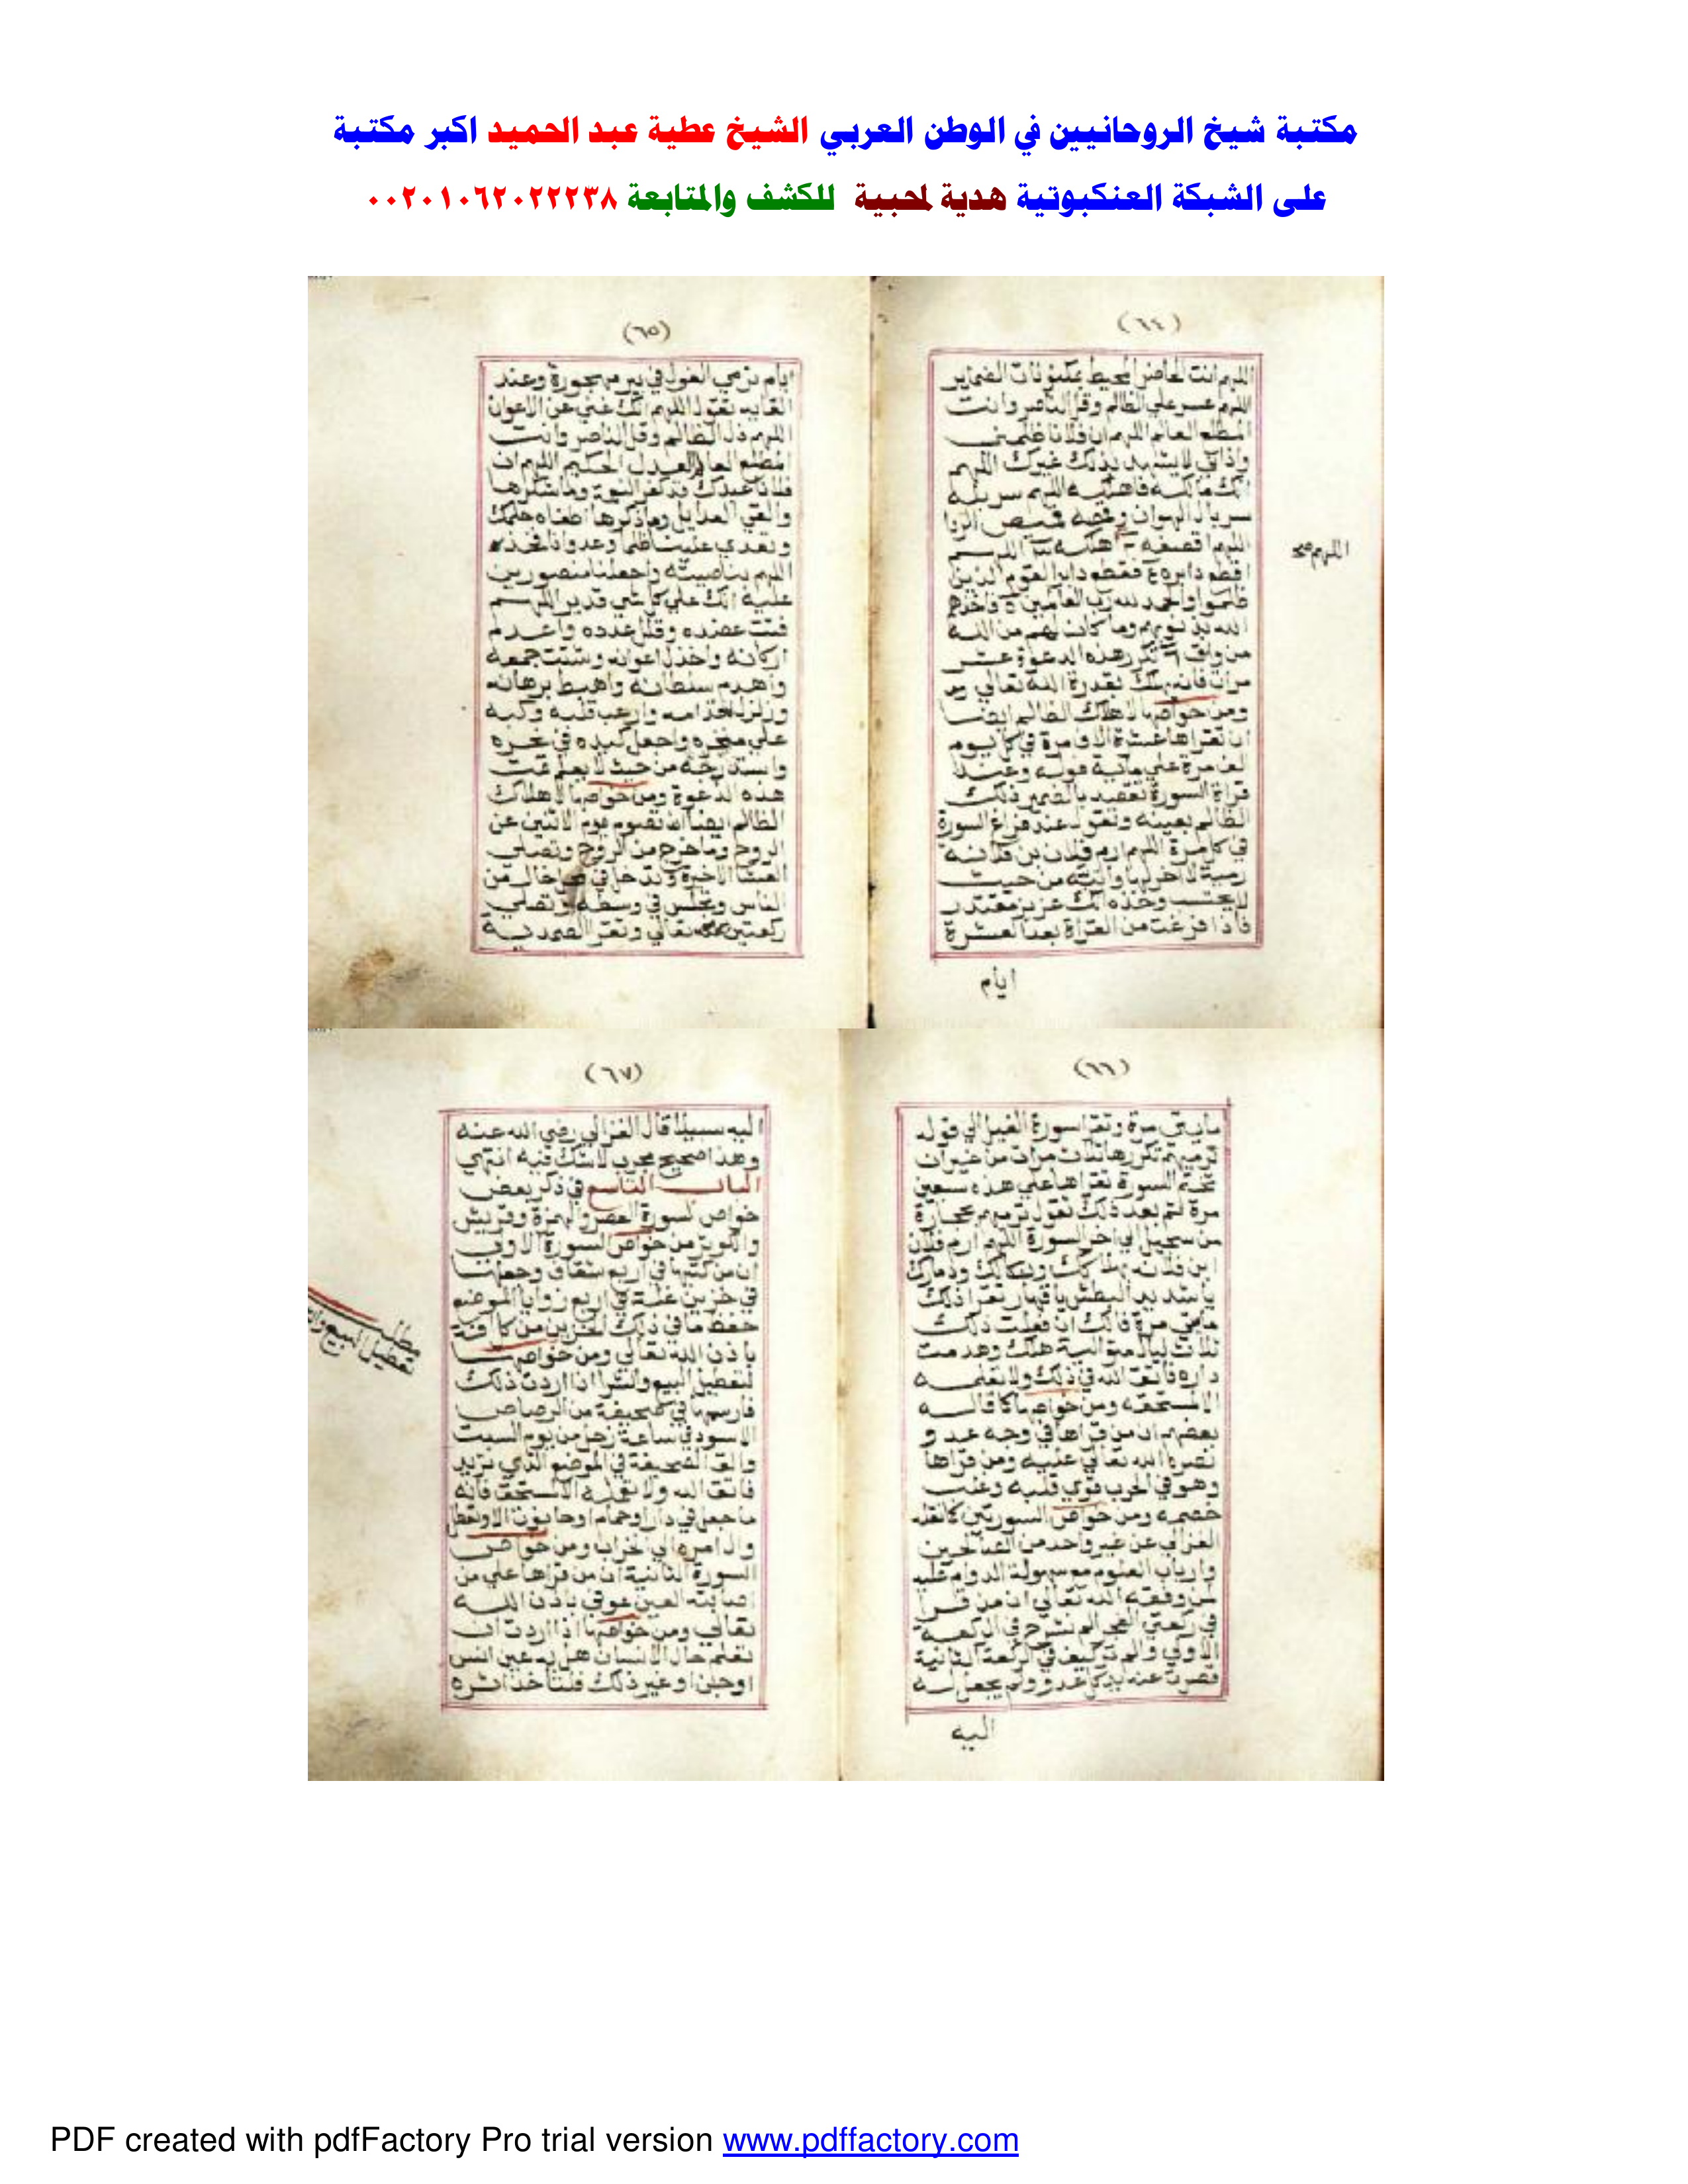 مكتبة شيخ الروحانيين في الوطن العربي الشيخ عطية عبد الحميد اكبر مكتبة
على الشبكة العنكبوتية هدية لمحبية للكشف والمتابعة ٠٠٢٠١٠٦٢٠٢٢٢٣٨
(٦٤)
اللهم انت الحاضر المحيط بمكنونات الضماير
اللهم عسر علي الظالم وقل الناصر وانت
المطلع العالم اللهم ان فلانا ظلمني
واذاني لا يشهد بذلك غيرك اللهم
انك مالكه فاهلكه اللهم سربله
سربال الهوان وقمصه قميص الردا
اللهم اقصفه
اللهم صح
فقطع دابر القوم الذين
ظلموا والحمد لله رب العالمين فاخذهم
الله بذنوبهم وما كان لهم من الله
من واق تكرر هذه الدعوة عشر
مرات فانه يهلك بقدرة الله تعالي
ومن خواصها لاهلاك الظالم ايضا
ان تقراها عشرة الاف مرة في كل يوم
الف مرة علي ماية فولة وعند
قراة السورة تقصد بالضمير ذلك
الظالم بعينه وتقول عند فراغ السورة
في كل مرة اللهم ارم فلان بن فلانة
رمية لا اخر لها واليته من حيث
لا يحتسب وخذه انك عزيز مقتدر
فاذا فرغت من القراة بعد العشرة
ايام
(٦٥)
ايام ترمي الفول في بير مهجورة وعند
القايه تقول اللهم انك غني عن الاعوان
اللهم ذل الظالم وقل الناصر وانت
المطلع العالم العدل الحكيم اللهم ان
فلانا عبدك قد كفر النعمة وما شكرها
والقي العدايل وما ذكرها اطغاه حلمك
وتعدي علينا ظلما وعدوانا فخذه
اللهم بناصيته واجعلنا منصورين
عليه انك علي كل شي قدير اللهم
فتت عضده وقلل عدده واعدم
اركانه واخذل اعوانه وشتت جمعه
واهدم سلطانه واهبط برهانه
وزلزل اقدامه وارعب قلبه وكبه
علي منخره واجعل كيده في نحره
واستدرجه من حيث لا يعلم تمت
هذه الدعوة ومن خواصها لاهلاك
الظالم ايضا ان تصوم يوم الاثنين عن
الروح وما خرج من الروح وتصلي
العشا الاخيرة وتدخل في خال من
الناس وتجلس في وسطه وتصلي
ركعتين تعالي وتقرا الصمدية
(٦٦)
مايتي مرة وتقرا سورة الفيل الي قوله
ترميهم تكررها ثلاث مرات من غير ان
تختم السورة تقراها علي هذه سبعين
مرة ثم بعد ذلك تقول ترميهم بحجارة
من سجيل الي اخر السورة اللهم ارم فلان
ابن فلانه بهلاكك ونكالك ودمارك
يا شديد البطش يا قهار تقرا ذلك
مايتي مرة فانك ان فعلت ذلك
ثلاث ليال متوالية هلك وهدمت
داره فاتق الله في ذلك ولا تعلمه
الا لمستحقه ومن خواصها كما قاله
بعضهم ان من قراها في وجه عدو
نصره الله تعالي عليه ومن قراها
وهو في الحرب قوي قلبه وغلب
خصمه ومن خواص السورتين كما نقله
الغزالي عن غير واحد من الصالحين
وارباب العلوم مع سهولة الدوام عليه
لمن وفقه الله تعالي ان من قرا
في ركعتي الفجر الم نشرح في الركعة
الاولي والم تر كيف في الركعة الثانية
قصرت عنه يد كل عدو ولم يجعل له
اليه
(٦٧)
اليه سبيلا قال الغزالي رضي الله عنه
وهذا صحيح مجرب لا شك فيه انتهي
الباب التاسع في ذكر بعض
خواص لسورة العصر والهمزة وقريش
والكوثر من خواص السورة الاولي
ان من كتبها في اربع شقاف وجعلها
في خزين غلة في اربع زوايا الموضع
حفظ ما في ذلك الخزين من كل افة
باذن الله تعالي ومن خواصها
لتعطيل البيع والشرا اذا اردت ذلك
مطلب
تعطيل البيع
فارسمها في صحيفة من الرصاص
الاسود في ساعة زحل من يوم السبت
والق الصحيفة في الموضع الذي تريد
فاتق الله ولا تفعله الا لمستحق فانه
ما جعل في دار او حمام او حانوت الا وتعطل
وال امره الي الخراب ومن خواص
السورة الثانية ان من قراها علي من
اصابته العين عوفي باذن الله
تعالي ومن خواصها اذا اردت ان
تعلم حال الانسان هل به عين انس
او جن او غير ذلك فلتاخذ اثره
PDF created with pdfFactory Pro trial version www.pdffactory.com